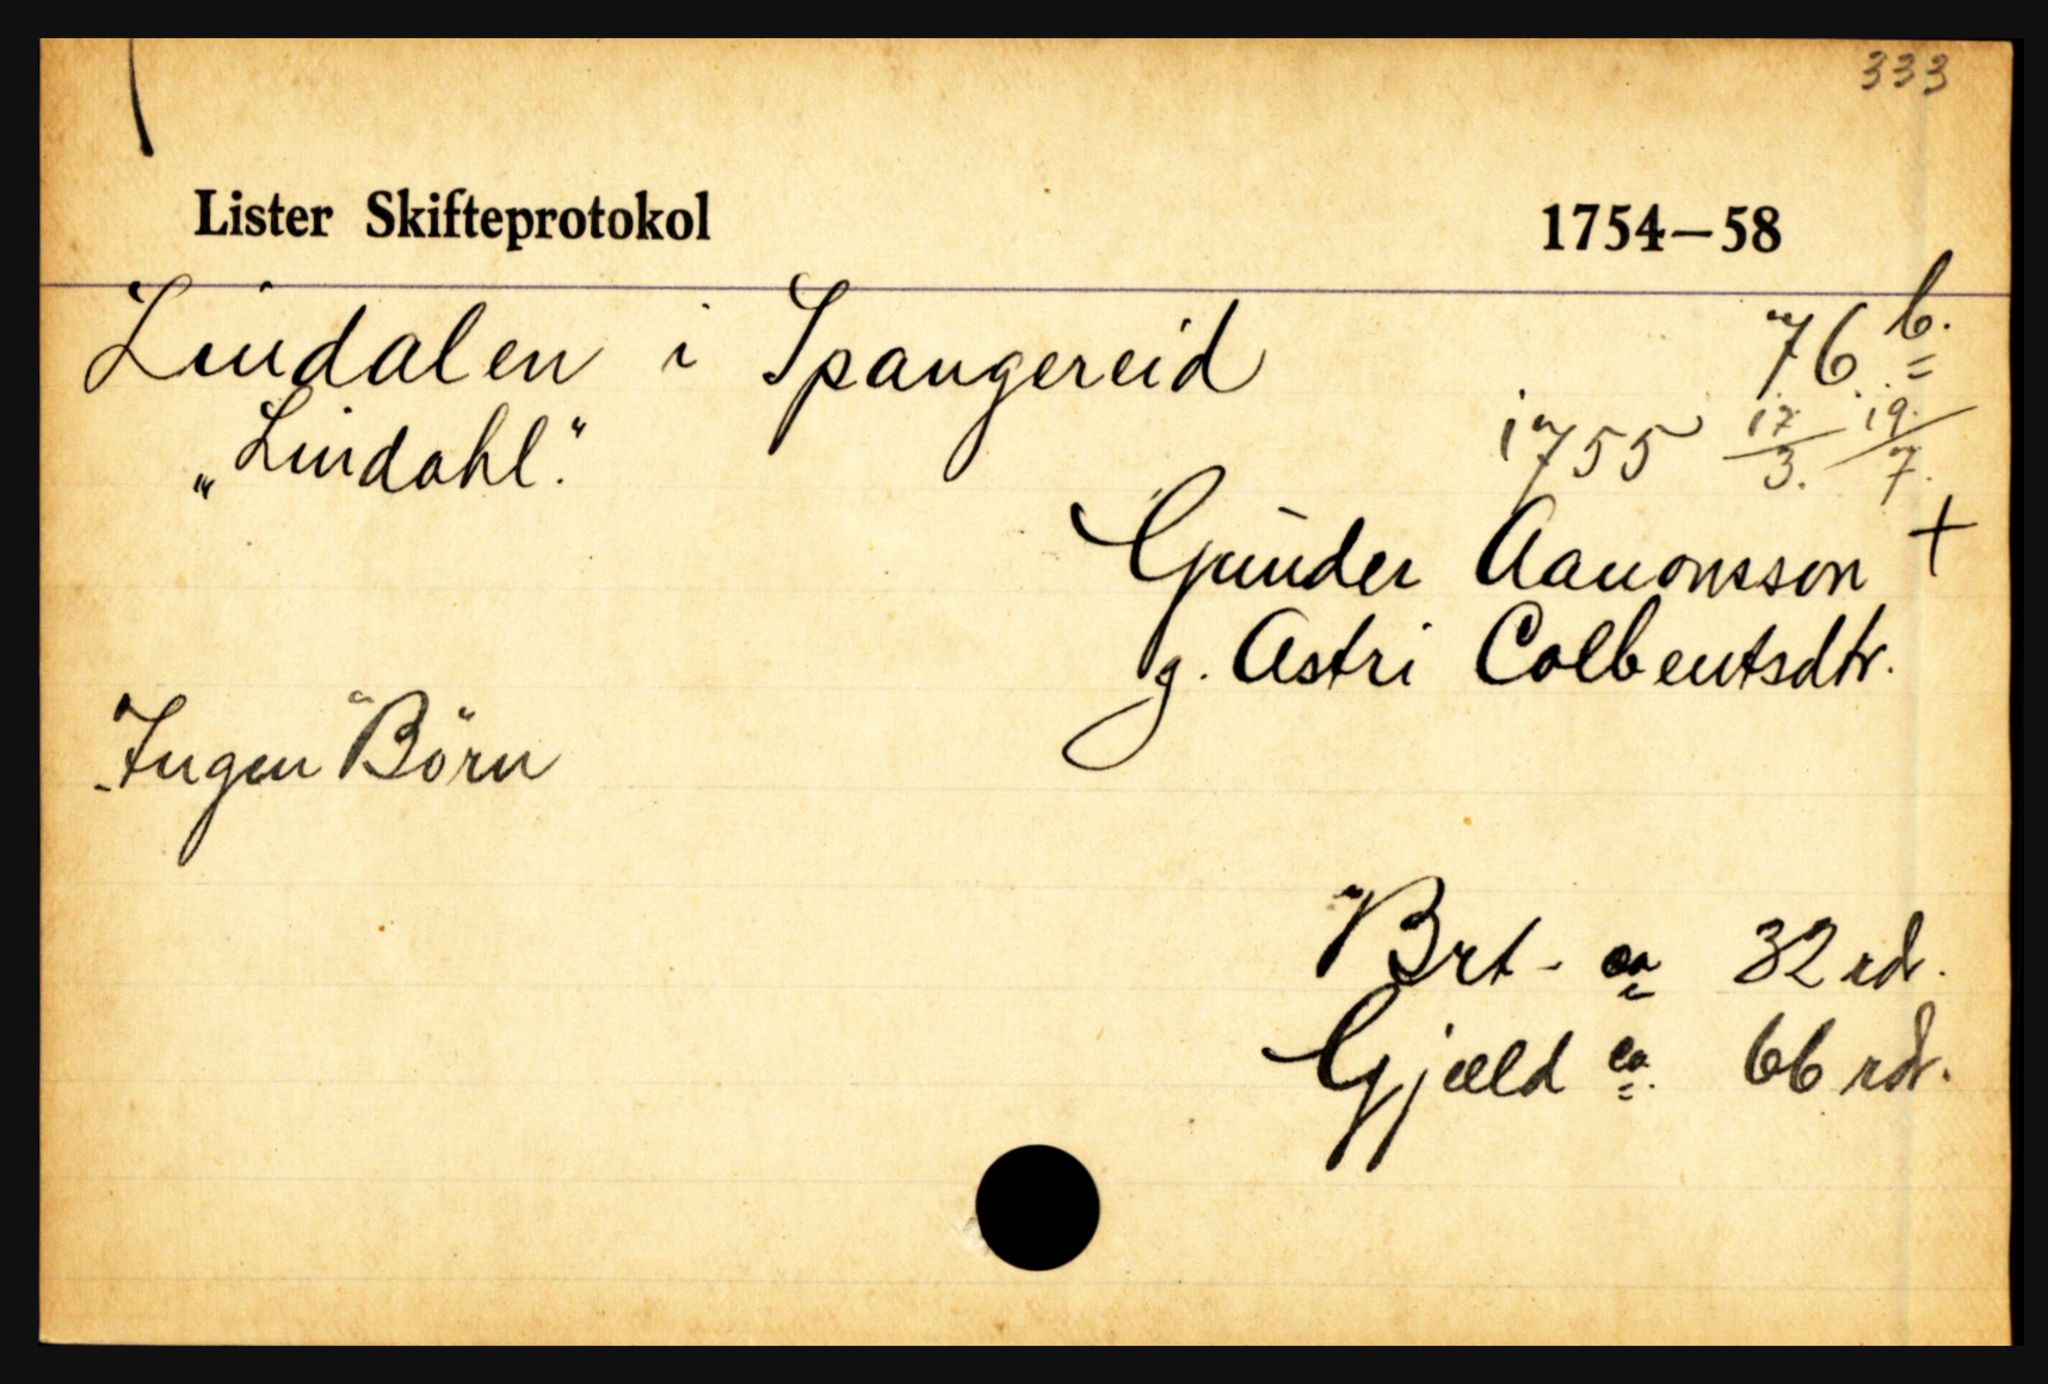 333
Lister Skifteprotokol 1754—58
Lindalen i Spangereid 76 b.
"Lindahl." 1755 17/3. 19/7.
Gunder Aanonsson +
g. Astri Colbentsdtr.
Ingen Börn
Brt - ca 32 rdr.
Gjæld ca. 66 rdr.